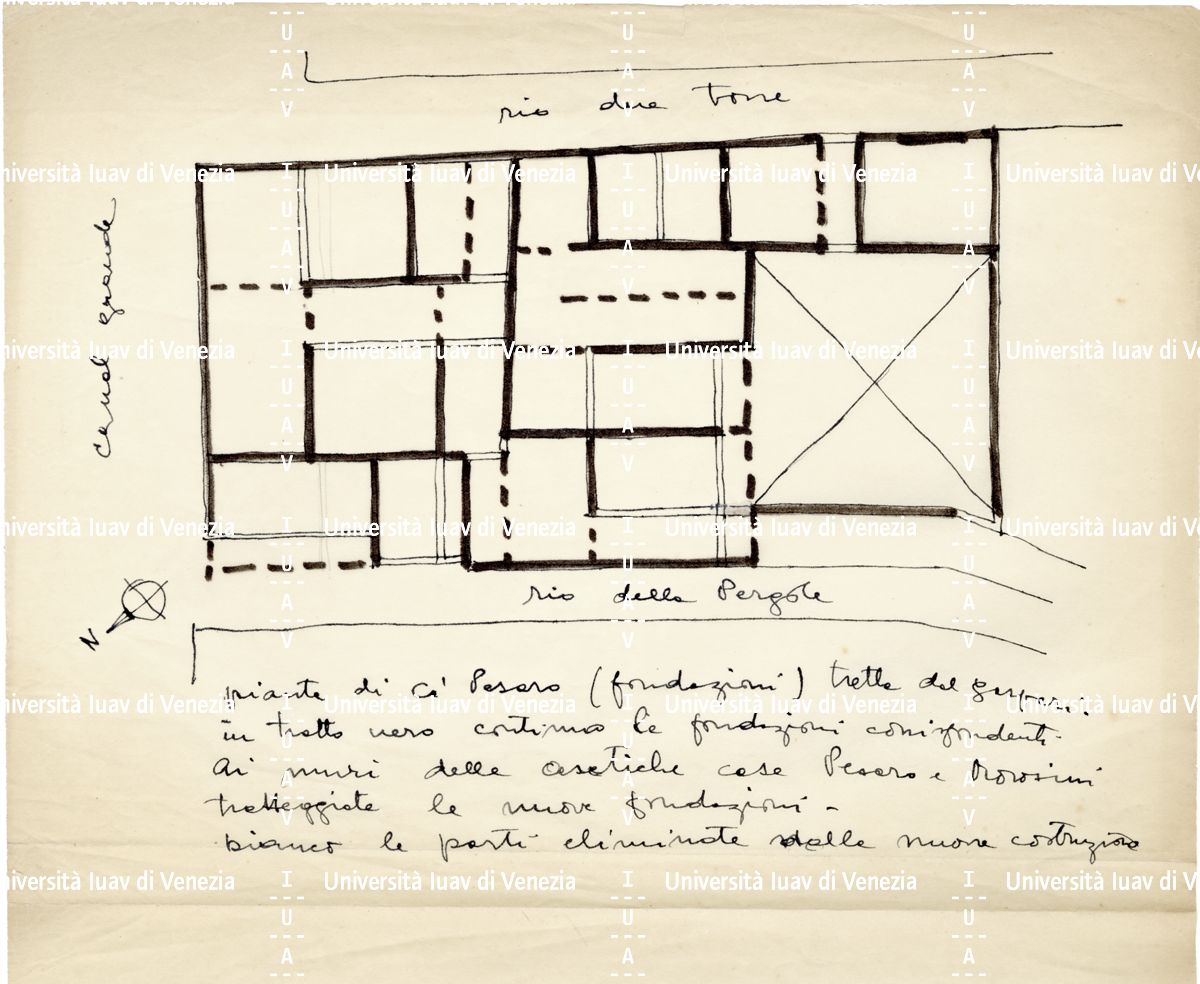 rio due torre
canal grande
rio della Pergole
N
pianta di Ca' Pesaro (fondazioni) tratta dal gaspari.
in tratto nero continuo le fondazioni corrispondenti
ai muri delle case Pesaro e
tratteggiate le nuove fondazioni -
bianco le parti eliminate dalla nuova costruzione
Università Iuav di Venezia
I
U
A
V